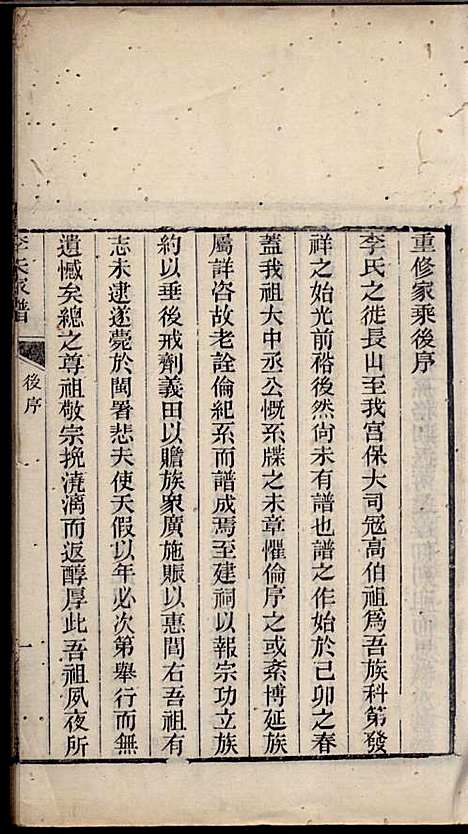 重修家乘後序
李氏之徙長山至我宫保大司寇高伯祖爲吾族科第發
祥之始光前裕後然尚未有譜也譜之作始於己卯之春
蓋我祖大中丞公慨系牒之未章懼倫序之或紊博延族
屬詳咨故老詮倫紀系而譜成焉至建祠以報宗功立族
約以垂後戒劑義田以贍族衆廣施賑以惠閭右吾祖有
志未逮遂薨於閩署悲夫使天假以年必次第舉行而無
遺憾矣總之尊祖敬宗挽澆漓而返醇厚此吾祖夙夜所
李氏家譜
後序
一